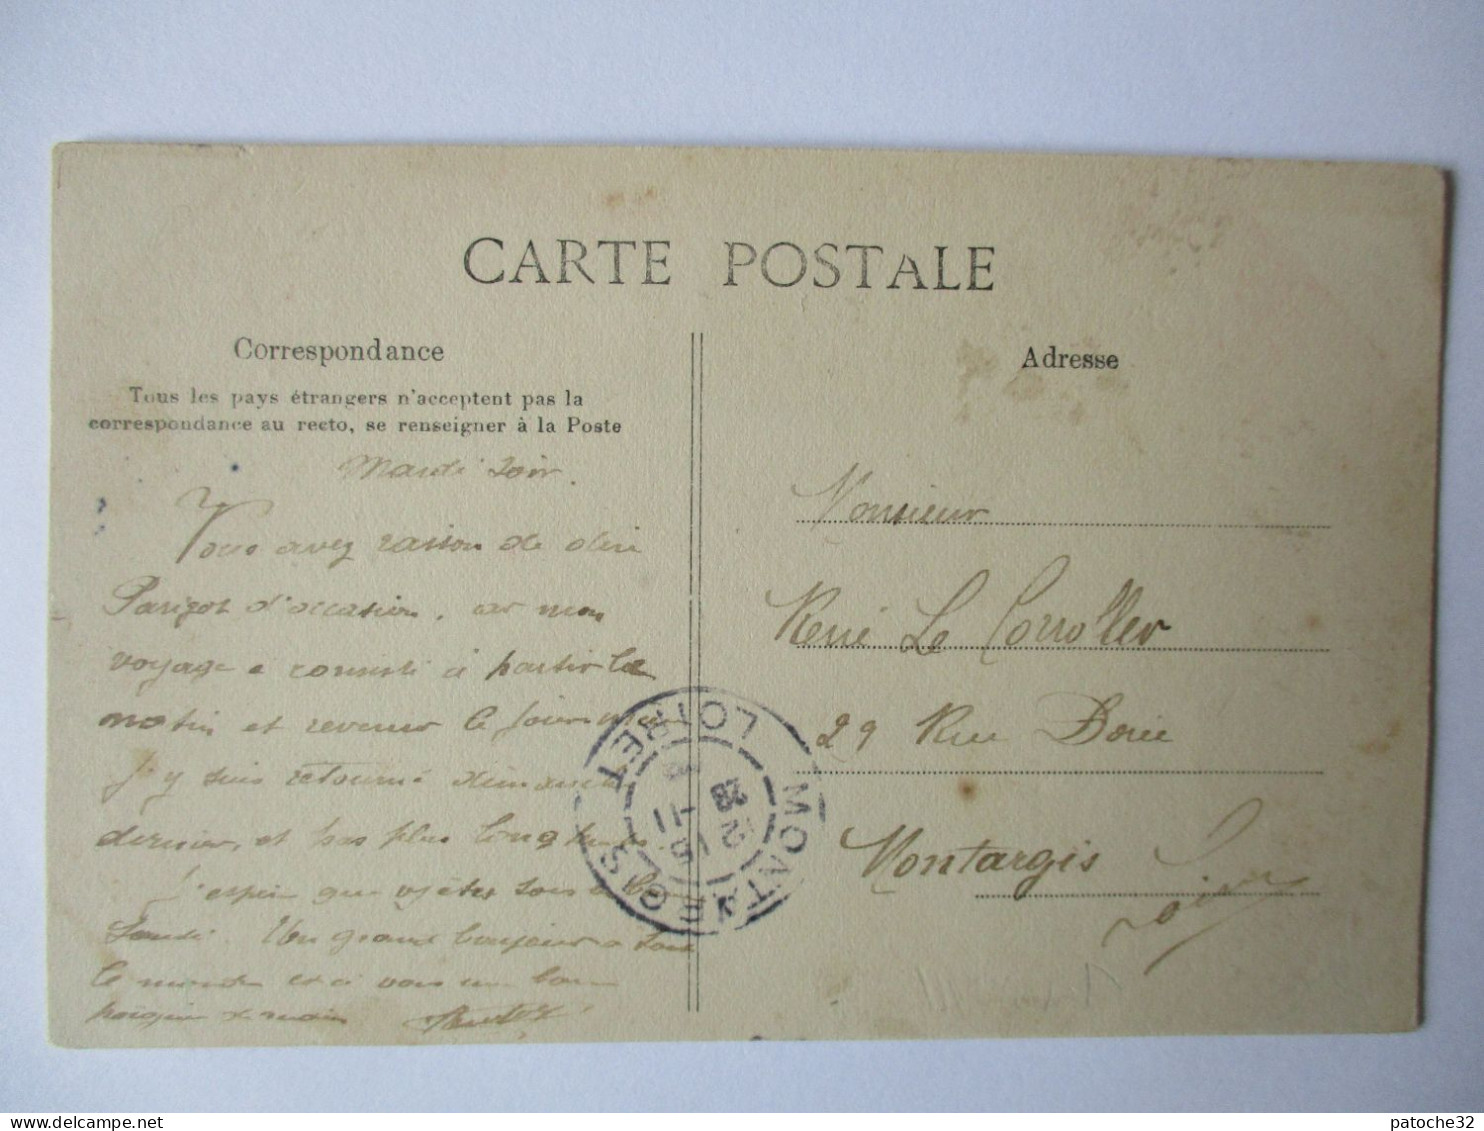 CARTE POSTALE
Correspondance
Tous les pays étrangers n'acceptent pas la
correspondance au recto, se renseigner à la Poste
Mardi soir.
Vous avez raison de dire
Parigot d'occasion, car mon
voyage a consisté à partir le
matin et revenir le jour même
J'y suis retourné dimanche
dernier, et pas plus longtemps.
J'espère que vs êtes tous en bonne
Santé. Un grand bonjour à tout
le monde et à vous une bonne
poignée de main
Adresse
Monsieur
René Le Corroller
29 Rue Dorée
Montargis
Loiret
MONTARGIS
LOIRET
patoche32